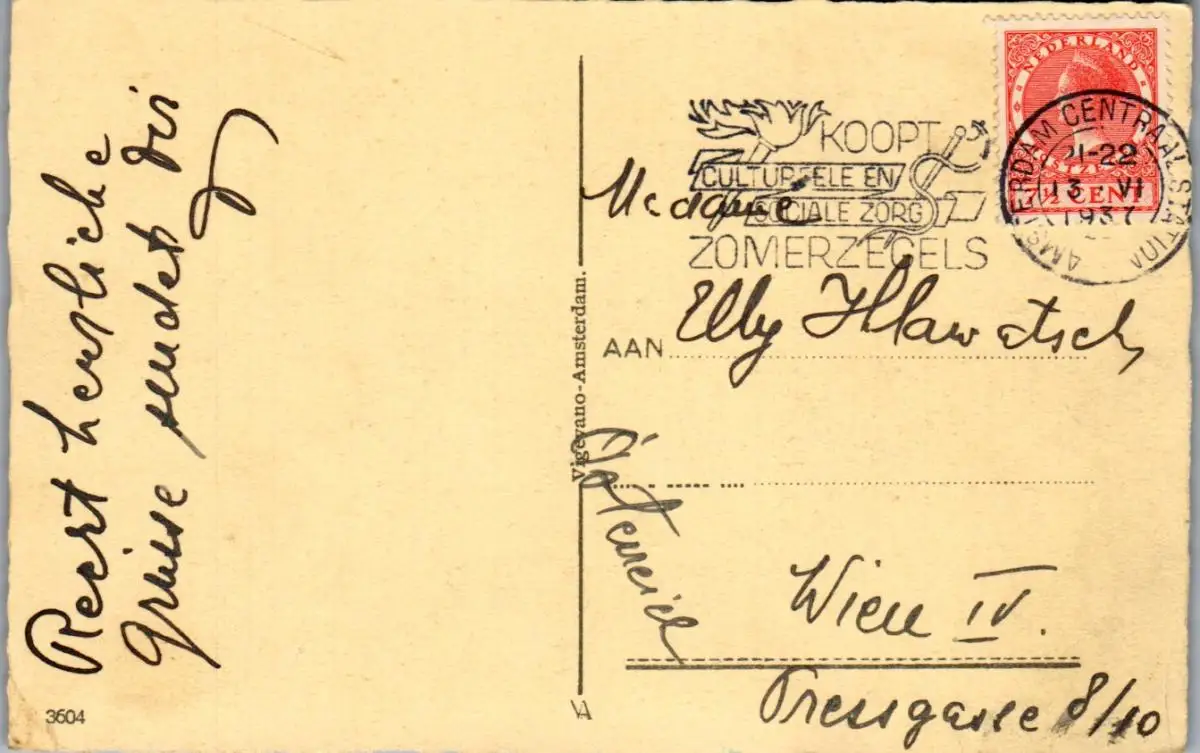 Recht herzliche
Grüsse sendet Dir
3604
Vigevano-Amsterdam.
VA
NEDERLAND
7½ CENT
AMSTERDAM CENTRAAL STATION
21-22
13·VI
1937
KOOPT
CULTUREELE EN
SOCIALE ZORG
ZOMERZEGELS
Madame
AAN Elly Hlawatsch
Österreich
Wien IV.
Pressgasse 8/10